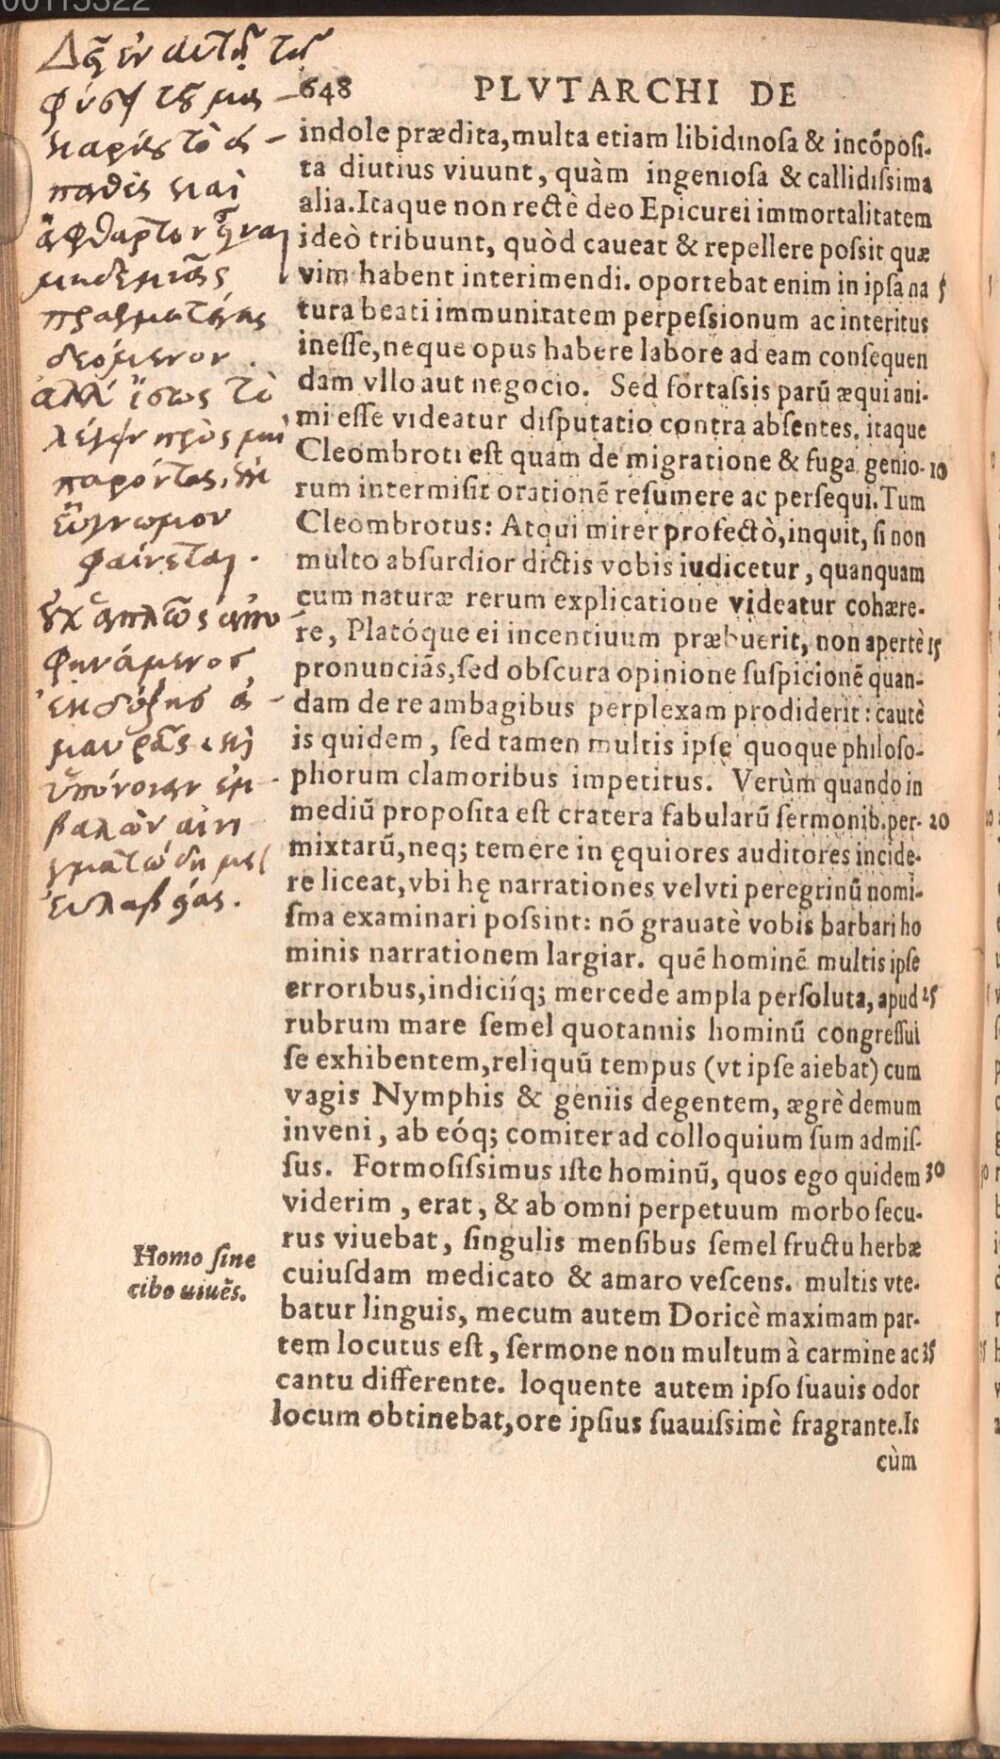 00115322
Δεῖ ἐν αὐτῇ τῇ
φύσει τοῦ μα-
καρίου τὸ ἀ-
παθὲς καὶ
ἄφθαρτον εἶναι
μηδεμιᾶς
πραγματείας
δεόμενον.
ἀλλ' ἴσως τὸ
λέγειν πρὸς μὴ
παρόντας, οὐκ
εὔγνωμον
φαίνεται.
οὐχ ἁπλῶς ἀπο-
φηνάμενος
ἐκ δόξης ἀ-
μαυρᾶς καὶ
ὑπόνοιαν ἐμ-
βαλὼν αἰνι-
γματώδη μετ'
εὐλαβείας.
648 PLVTARCHI DE
indole prædita, multa etiam libidinoſa & incōpoſi-
ta diutius viuunt, quàm ingenioſa & callidiſsima
alia. Itaque non rectè deo Epicurei immortalitatem
ideò tribuunt, quòd caueat & repellere poſsit quæ
vim habent interimendi. oportebat enim in ipſa na 5
tura beati immunitatem perpeſsionum ac interitus
ineſſe, neque opus habere labore ad eam conſequen
dam vllo aut negocio. Sed fortaſsis parū æqui ani-
mi eſſe videatur diſputatio contra abſentes. itaque
Cleombroti eſt quam de migratione & fuga genio- 10
rum intermiſit orationē reſumere ac perſequi. Tum
Cleombrotus: Atqui mirer profectò, inquit, ſi non
multo abſurdior dictis vobis iudicetur, quanquam
cum naturæ rerum explicatione videatur cohære-
re, Platóque ei incentiuum præbuerit, non apertè 15
pronunciās, ſed obſcura opinione ſuſpicionē quan-
dam de re ambagibus perplexam prodiderit: cautè
is quidem, ſed tamen multis ipſę quoque philoſo-
phorum clamoribus impetitus. Verùm quando in
mediū propoſita eſt cratera fabularū ſermonib. per- 20
mixtarū, neq; temere in ęquiores auditores incide-
re liceat, vbi hę narrationes velvti peregrinū nomi-
ſma examinari poſsint: nō grauatè vobis barbari ho
minis narrationem largiar. quē hominē multis ipſe
erroribus, indiciíq; mercede ampla perſoluta, apud 25
rubrum mare ſemel quotannis hominū congreſſui
ſe exhibentem, reliquū tempus (vt ipſe aiebat) cum
vagis Nymphis & geniis degentem, ægrè demum
inveni, ab eóq; comiter ad colloquium ſum admiſ-
ſus. Formoſiſsimus iſte hominū, quos ego quidem 30
viderim, erat, & ab omni perpetuum morbo ſecu-
rus viuebat, ſingulis menſibus ſemel fructu herbæ
cuiuſdam medicato & amaro veſcens. multis vte-
batur linguis, mecum autem Doricè maximam par-
tem locutus eſt, ſermone non multum à carmine ac 35
cantu differente. loquente autem ipſo ſuauis odor
locum obtinebat, ore ipſius ſuauiſsimè fragrante. Is
cùm
Homo ſine
cibo uiuēs.